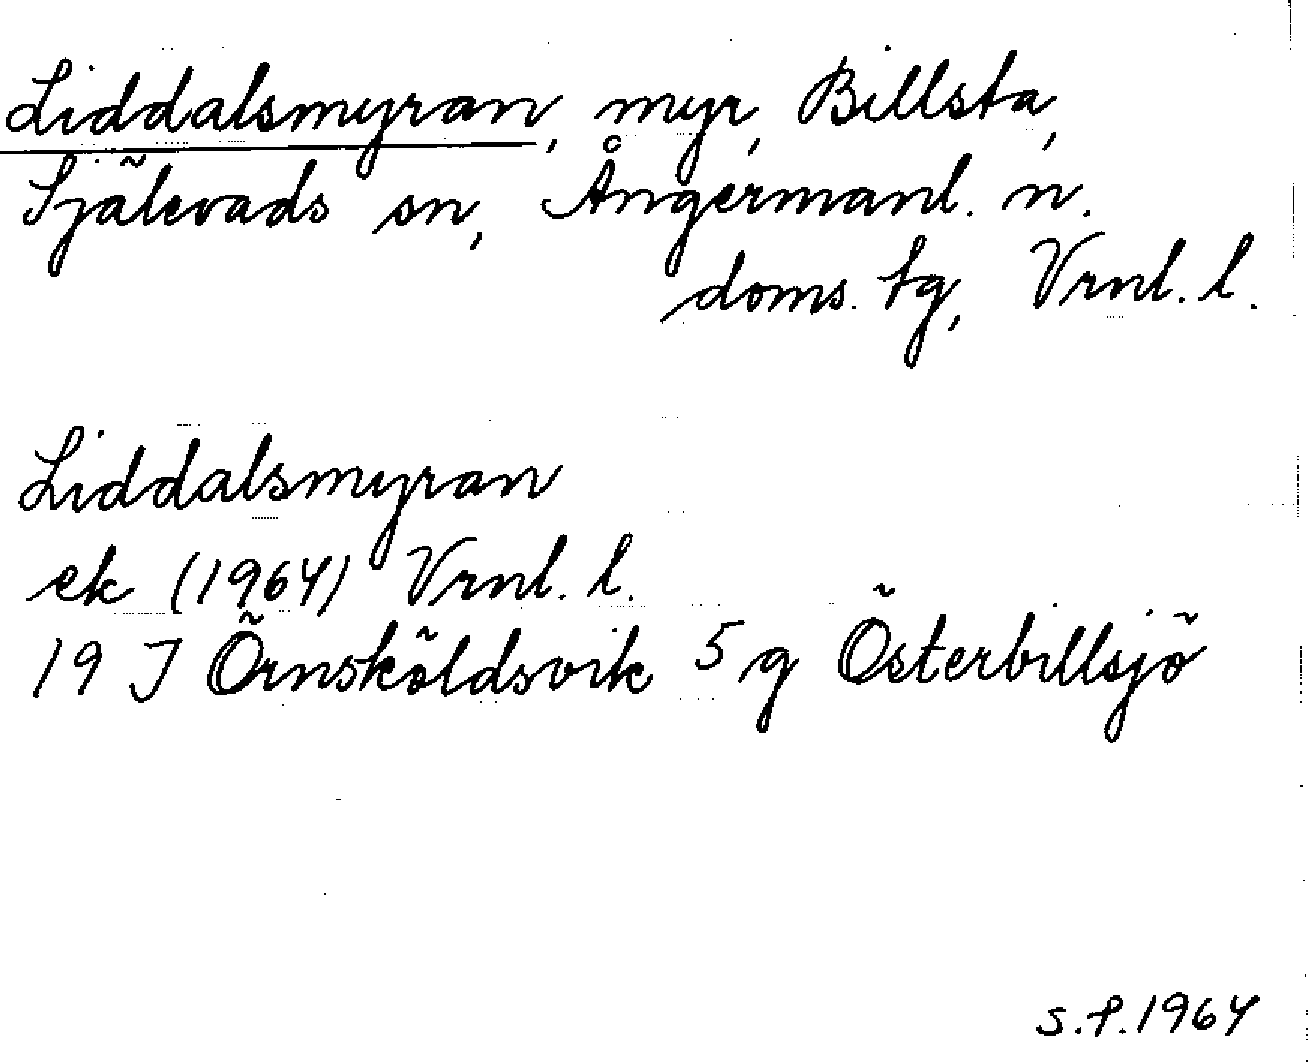 Liddalsmyran, myr, Billsta,
Själevads sn, Ångermanl. n.
doms. tg, Vrnl. l.
Liddalsmyran
ek (1964) Vrnl. l.
19 J Örnsköldsvik 5 g Österbillsjö
s.f. 1964